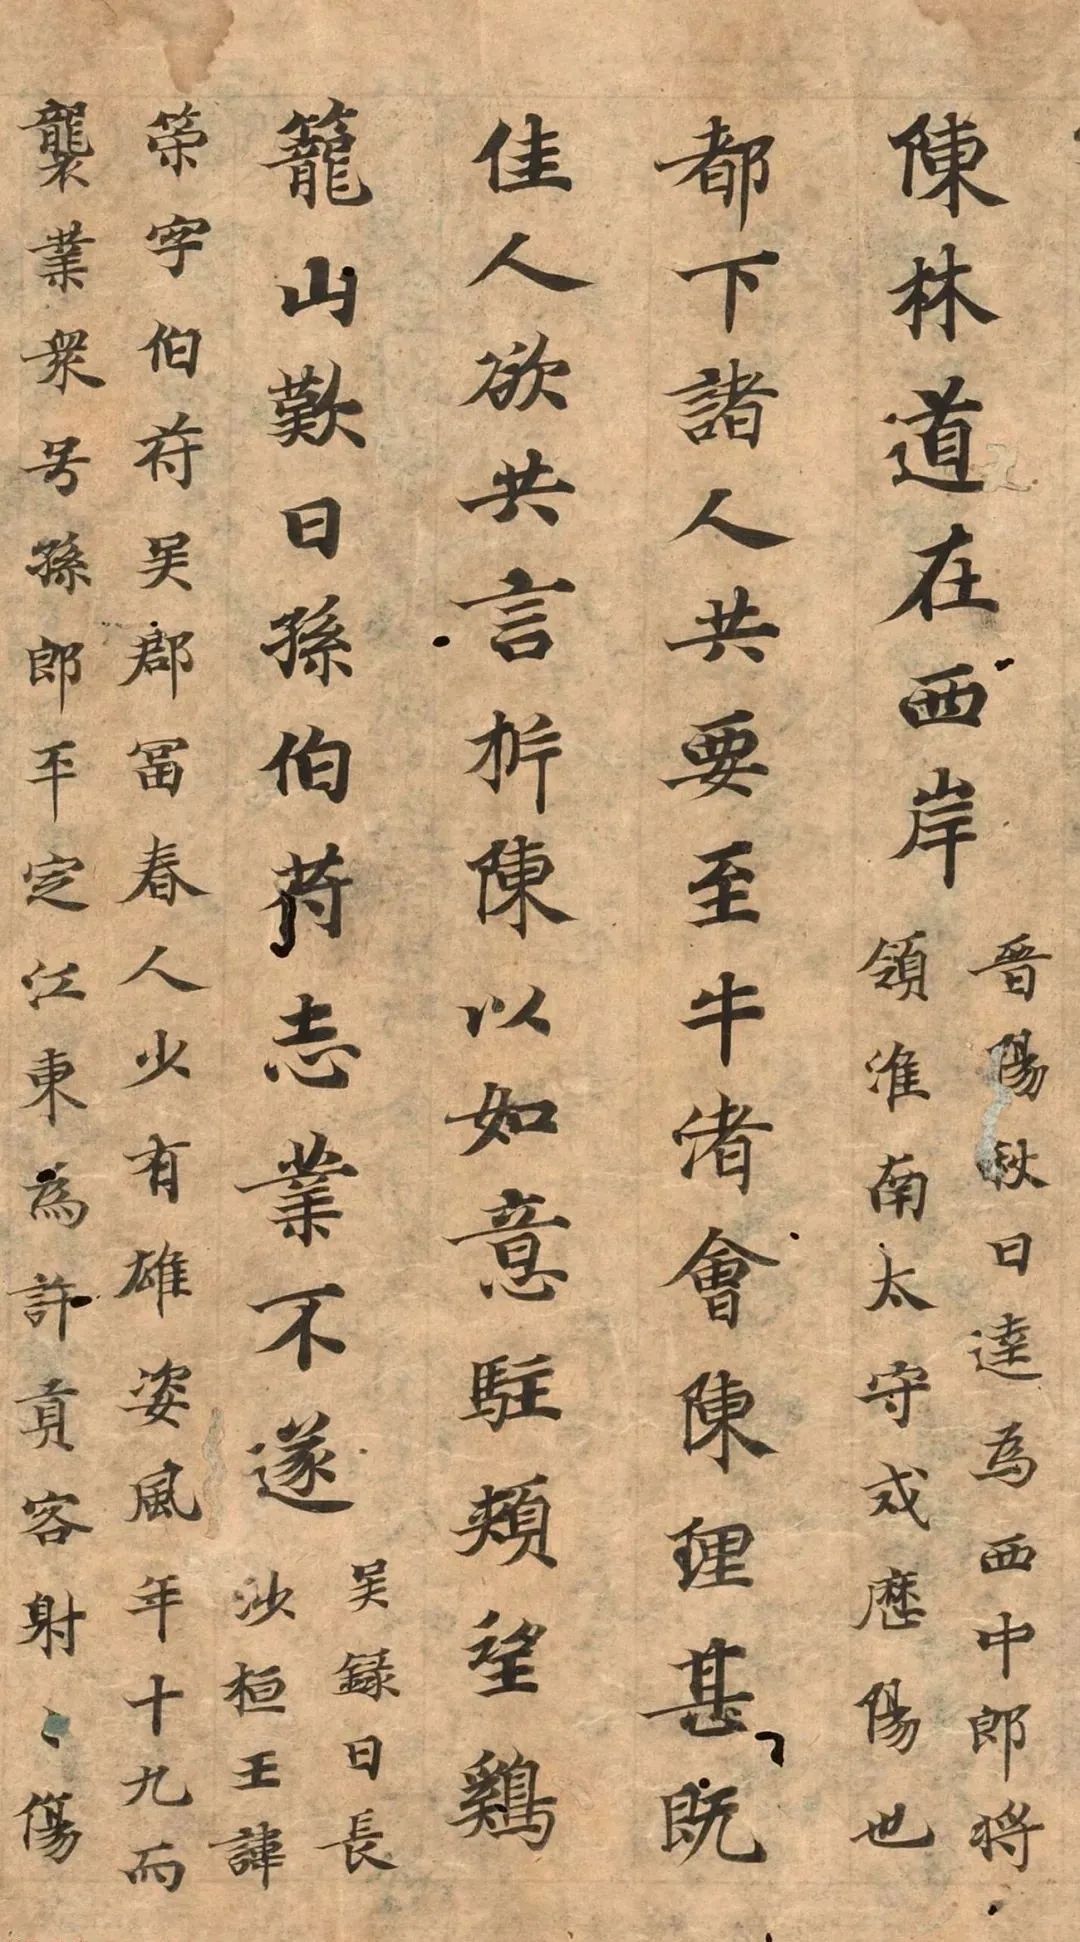 陳林道在西岸
晉陽秋曰逵為西中郎將
領淮南太守戍歷陽也
都下諸人共要至牛渚會陳理甚既
佳人欲共言析陳以如意駐頰望鷄
籠山歎曰孫伯苻志業不遂
吳録曰長
沙桓王諱
筞字伯苻吳郡冨春人少有雄姿風年十九而
襲業衆号孫郎平定江東為許貢客射〻傷